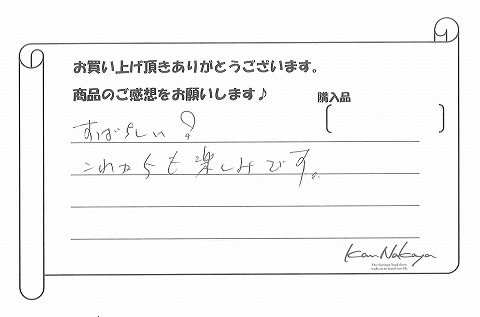 お買い上げ頂きありがとうございます。
商品のご感想をお願いします♪
購入品
すばらしい!
これからも楽しみです。
Kan Nakaya